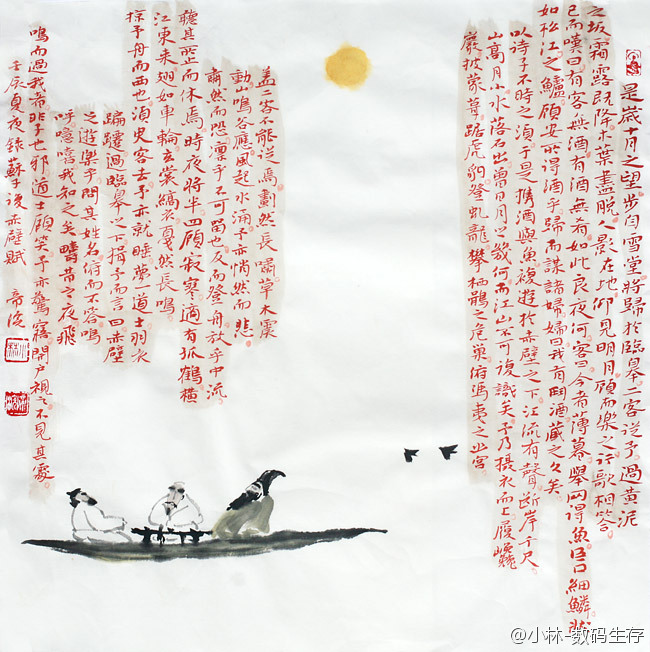 是歲十月之望步自雪堂將歸於臨皋二客從予過黃泥
之坂霜露既降木葉盡脫人影在地仰見明月顧而樂之行歌相答
已而嘆曰有客無酒有酒無肴如此良夜何客曰今者薄暮舉网得魚巨口細鱗狀
如松江之鱸顧安所得酒乎歸而謀諸婦婦曰我有鬥酒藏之久矣
以待子不時之須於是攜酒與魚複遊於赤壁之下江流有聲斷岸千尺
山高月小水落石出曾日月之幾何而江山不可復識矣予乃攝衣而上履巉
巖披蒙茸踞虎豹登虬龍攀栖鶻之危巢俯馮夷之幽宮
蓋二客不能從焉劃然長嘯草木震
動山鳴谷應風起水涌予亦悄然而悲
肅然而恐凜乎不可留也反而登舟放乎中流
聽其所止而休焉時夜將半四顧寂寥適有孤鶴橫
江東來翅如車輪玄裳縞衣戛然長鳴
掠予舟而西也須臾客去予亦就睡夢一道士羽衣
蹁躚過臨皋之下揖予而言曰赤壁
之遊樂乎問其姓名俯而不答嗚
呼噫嘻我知之矣疇昔之夜飛
鳴而過我者非子也邪道士顧笑予亦驚寤開戶視之不見其處
壬辰夏夜錄蘇子後赤壁賦
@小林-数码生存